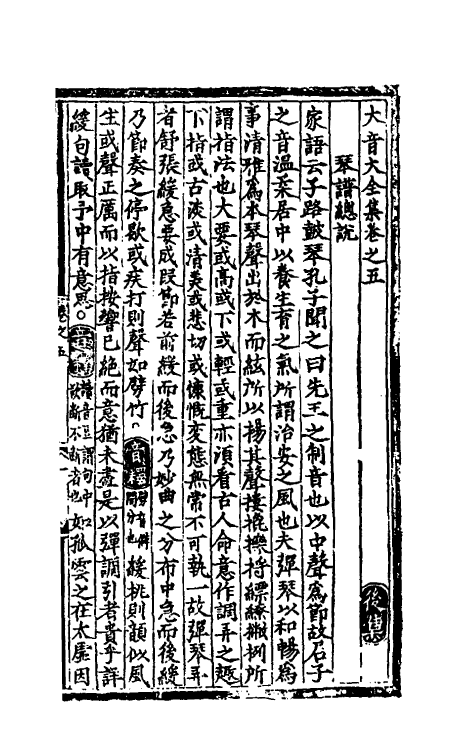 大音大全集卷之五 後集
琴譜總說
家語云子路鼓琴孔子聞之曰先王之制音也以中聲爲節故君子
之音溫柔居中以養生育之氣所謂治安之風也夫彈琴以和暢爲
事清雅爲本琴聲出於木而絃所以揚其聲摟擸擽捋縹繚撇捩所
謂指法也大要或高或下或輕或重亦須看古人命意作調弄之趣
下指或古淡或清美或悲切或慷慨变態無常不可執一故彈琴弄
者舒張緩急要成段節若前緩而後急乃妙曲之分布中急而後緩
乃節奏之停歇或疾打則聲如劈竹。音釋劈音僻開分也緩挑則韻似風
生或聲正厲而以指按響已絕而意猶未盡是以彈調引者貴乎詳
緩句讀取予中有意思。音釋讀音豆謂句中如欲斷不斷者也如孤雲之在太虛因